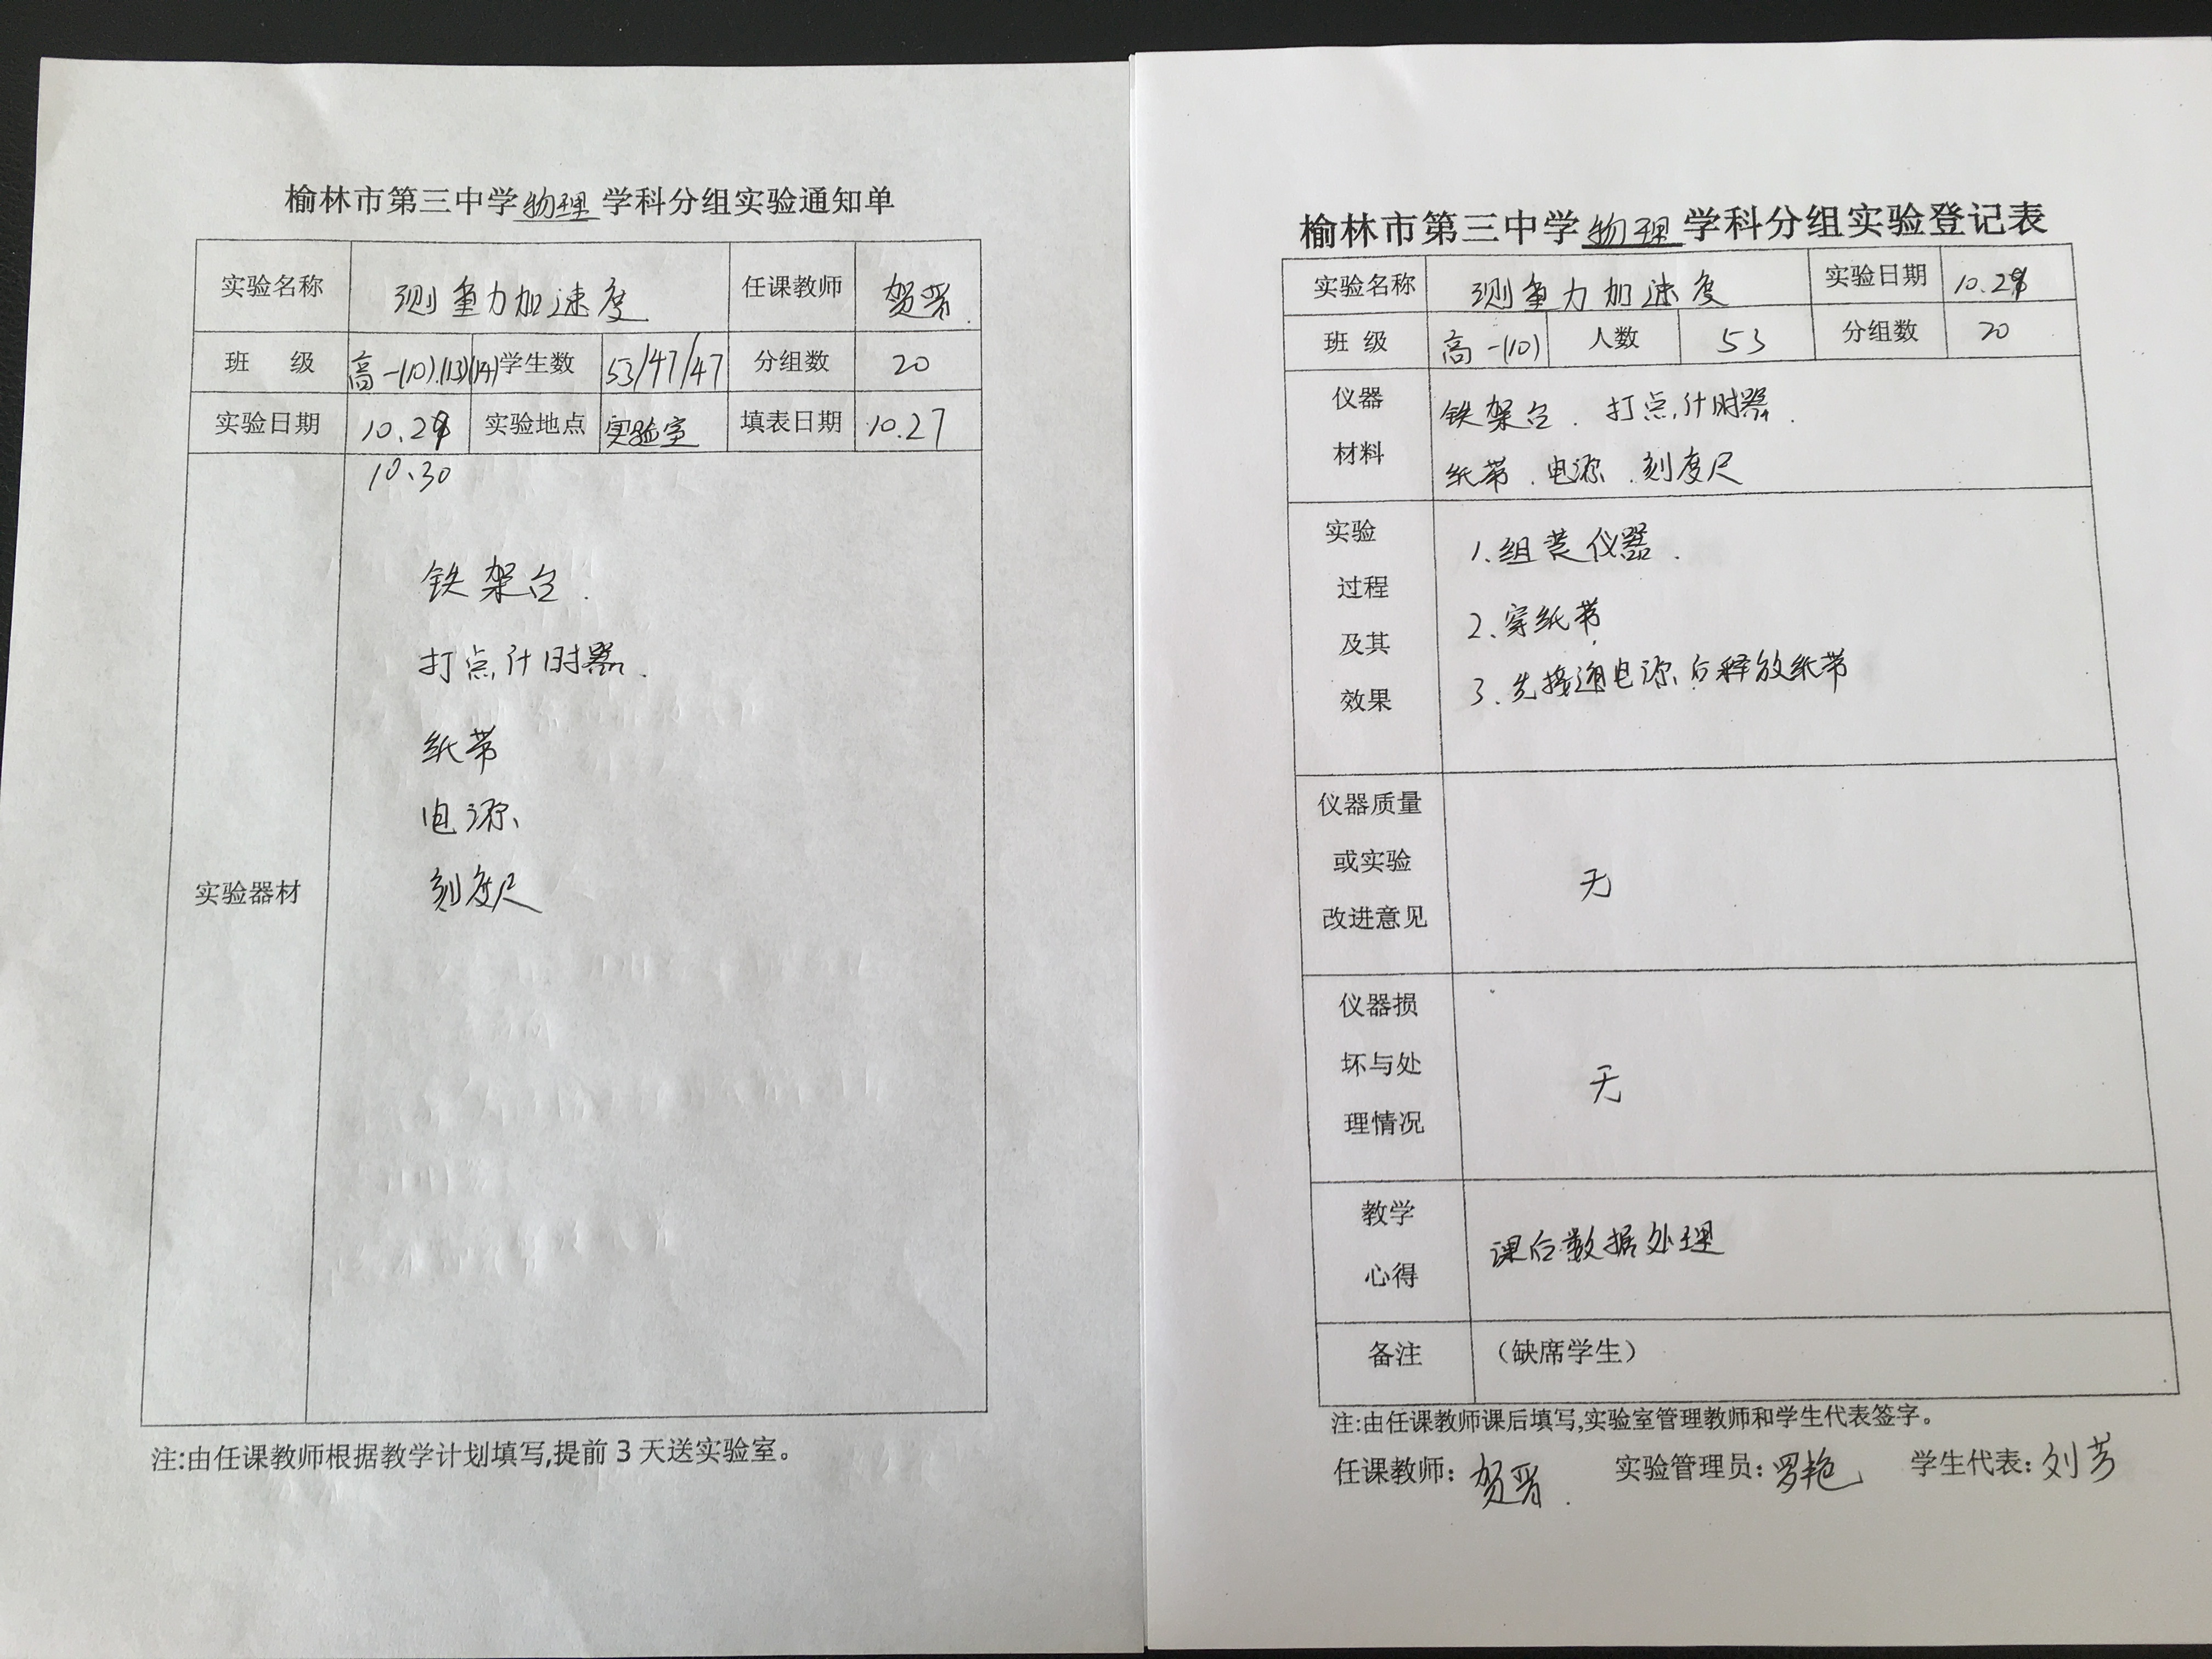 榆林市第三中学物理学科分组实验通知单
实验名称 测重力加速度 任课教师 贺晋.
班 级 高一(10).(13)(14) 学生数 53/47/47 分组数 20
实验日期 10.29 实验地点 实验室 填表日期 10.27
10.30
实验器材
铁架台.
打点计时器.
纸带
电源、
刻度尺
注:由任课教师根据教学计划填写,提前3天送实验室。
榆林市第三中学物理学科分组实验登记表
实验名称 测重力加速度 实验日期 10.29
班 级 高一(10) 人数 53 分组数 20
仪器 铁架台.打点计时器.
材料 纸带.电源.刻度尺
实验 1.组装仪器.
过程 2、穿纸带
及其 3、先接通电源后释放纸带
效果
仪器质量
或实验 无
改进意见
仪器损
坏与处 无
理情况
教学 课后数据处理
心得
备注 (缺席学生)
注:由任课教师课后填写,实验室管理教师和学生代表签字。
任课教师: 贺晋. 实验管理员: 罗艳 学生代表: 刘芳